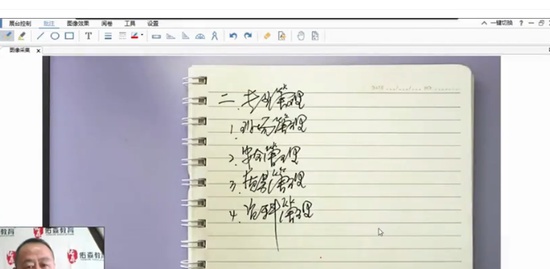 展台控制 批注 图像效果 阅卷 工具 设置
一键切换
图像采集
二、专业管理
1. 现场管理
2. 安全管理
3. 档案管理
4. 资料管理
佑森教育